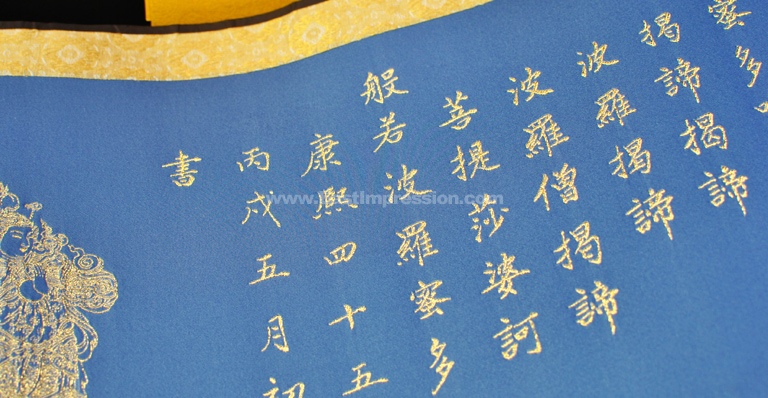 蜜多
揭諦揭諦
波羅揭諦
波羅僧揭諦
菩提莎婆訶
般若波羅蜜多
康熙四十五
丙戌五月初
書
www.BestImpression.com